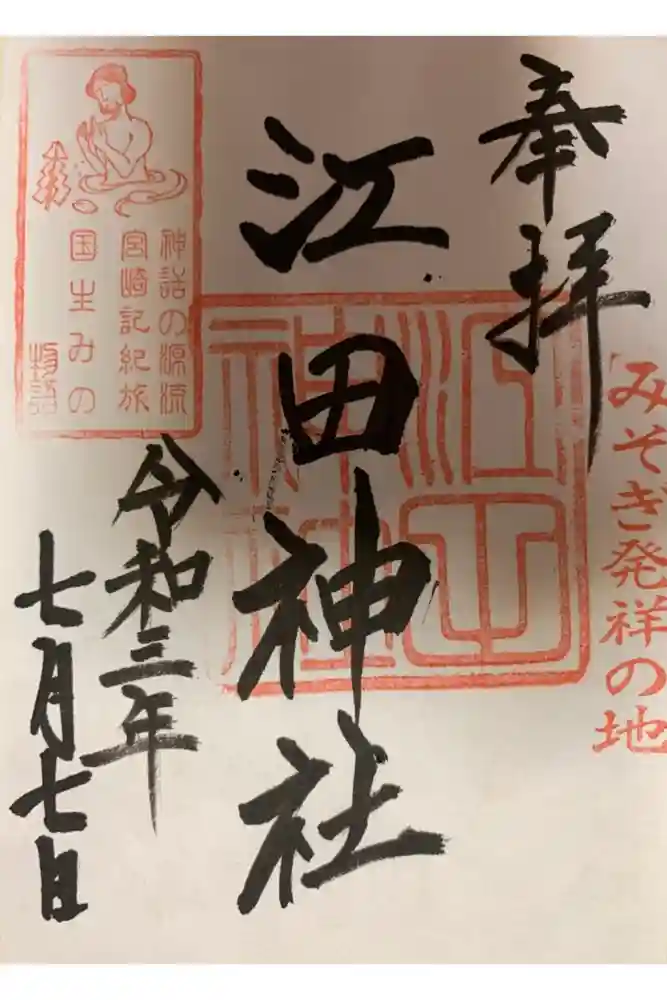 奉拝
みそぎ発祥の地
江田神社
江田神社
令和三年
七月七日
神話の源流
宮崎記紀旅
国生みの
物語